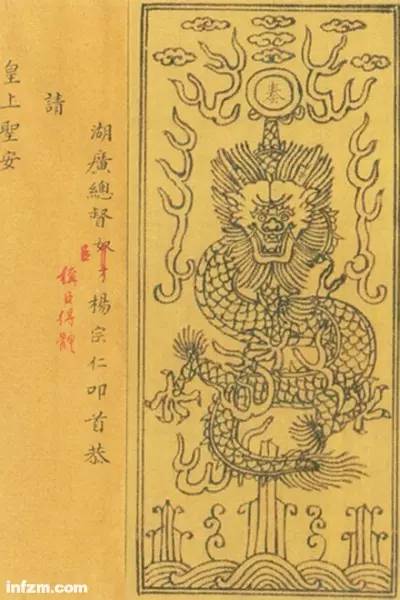 奏
湖廣總督奴才楊宗仁叩首恭
臣
稱臣得體
請
皇上聖安
infzm.com